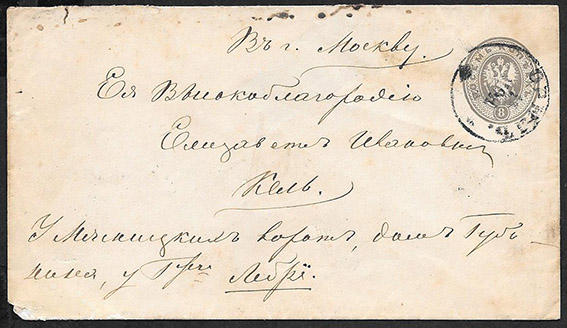 Въ г. Москву.
Ея Высокоблагородію
Елизаветѣ Ивановнѣ
Кель.
У Мясницкихъ воротъ, домъ
у Г-жи Лебрё.
8